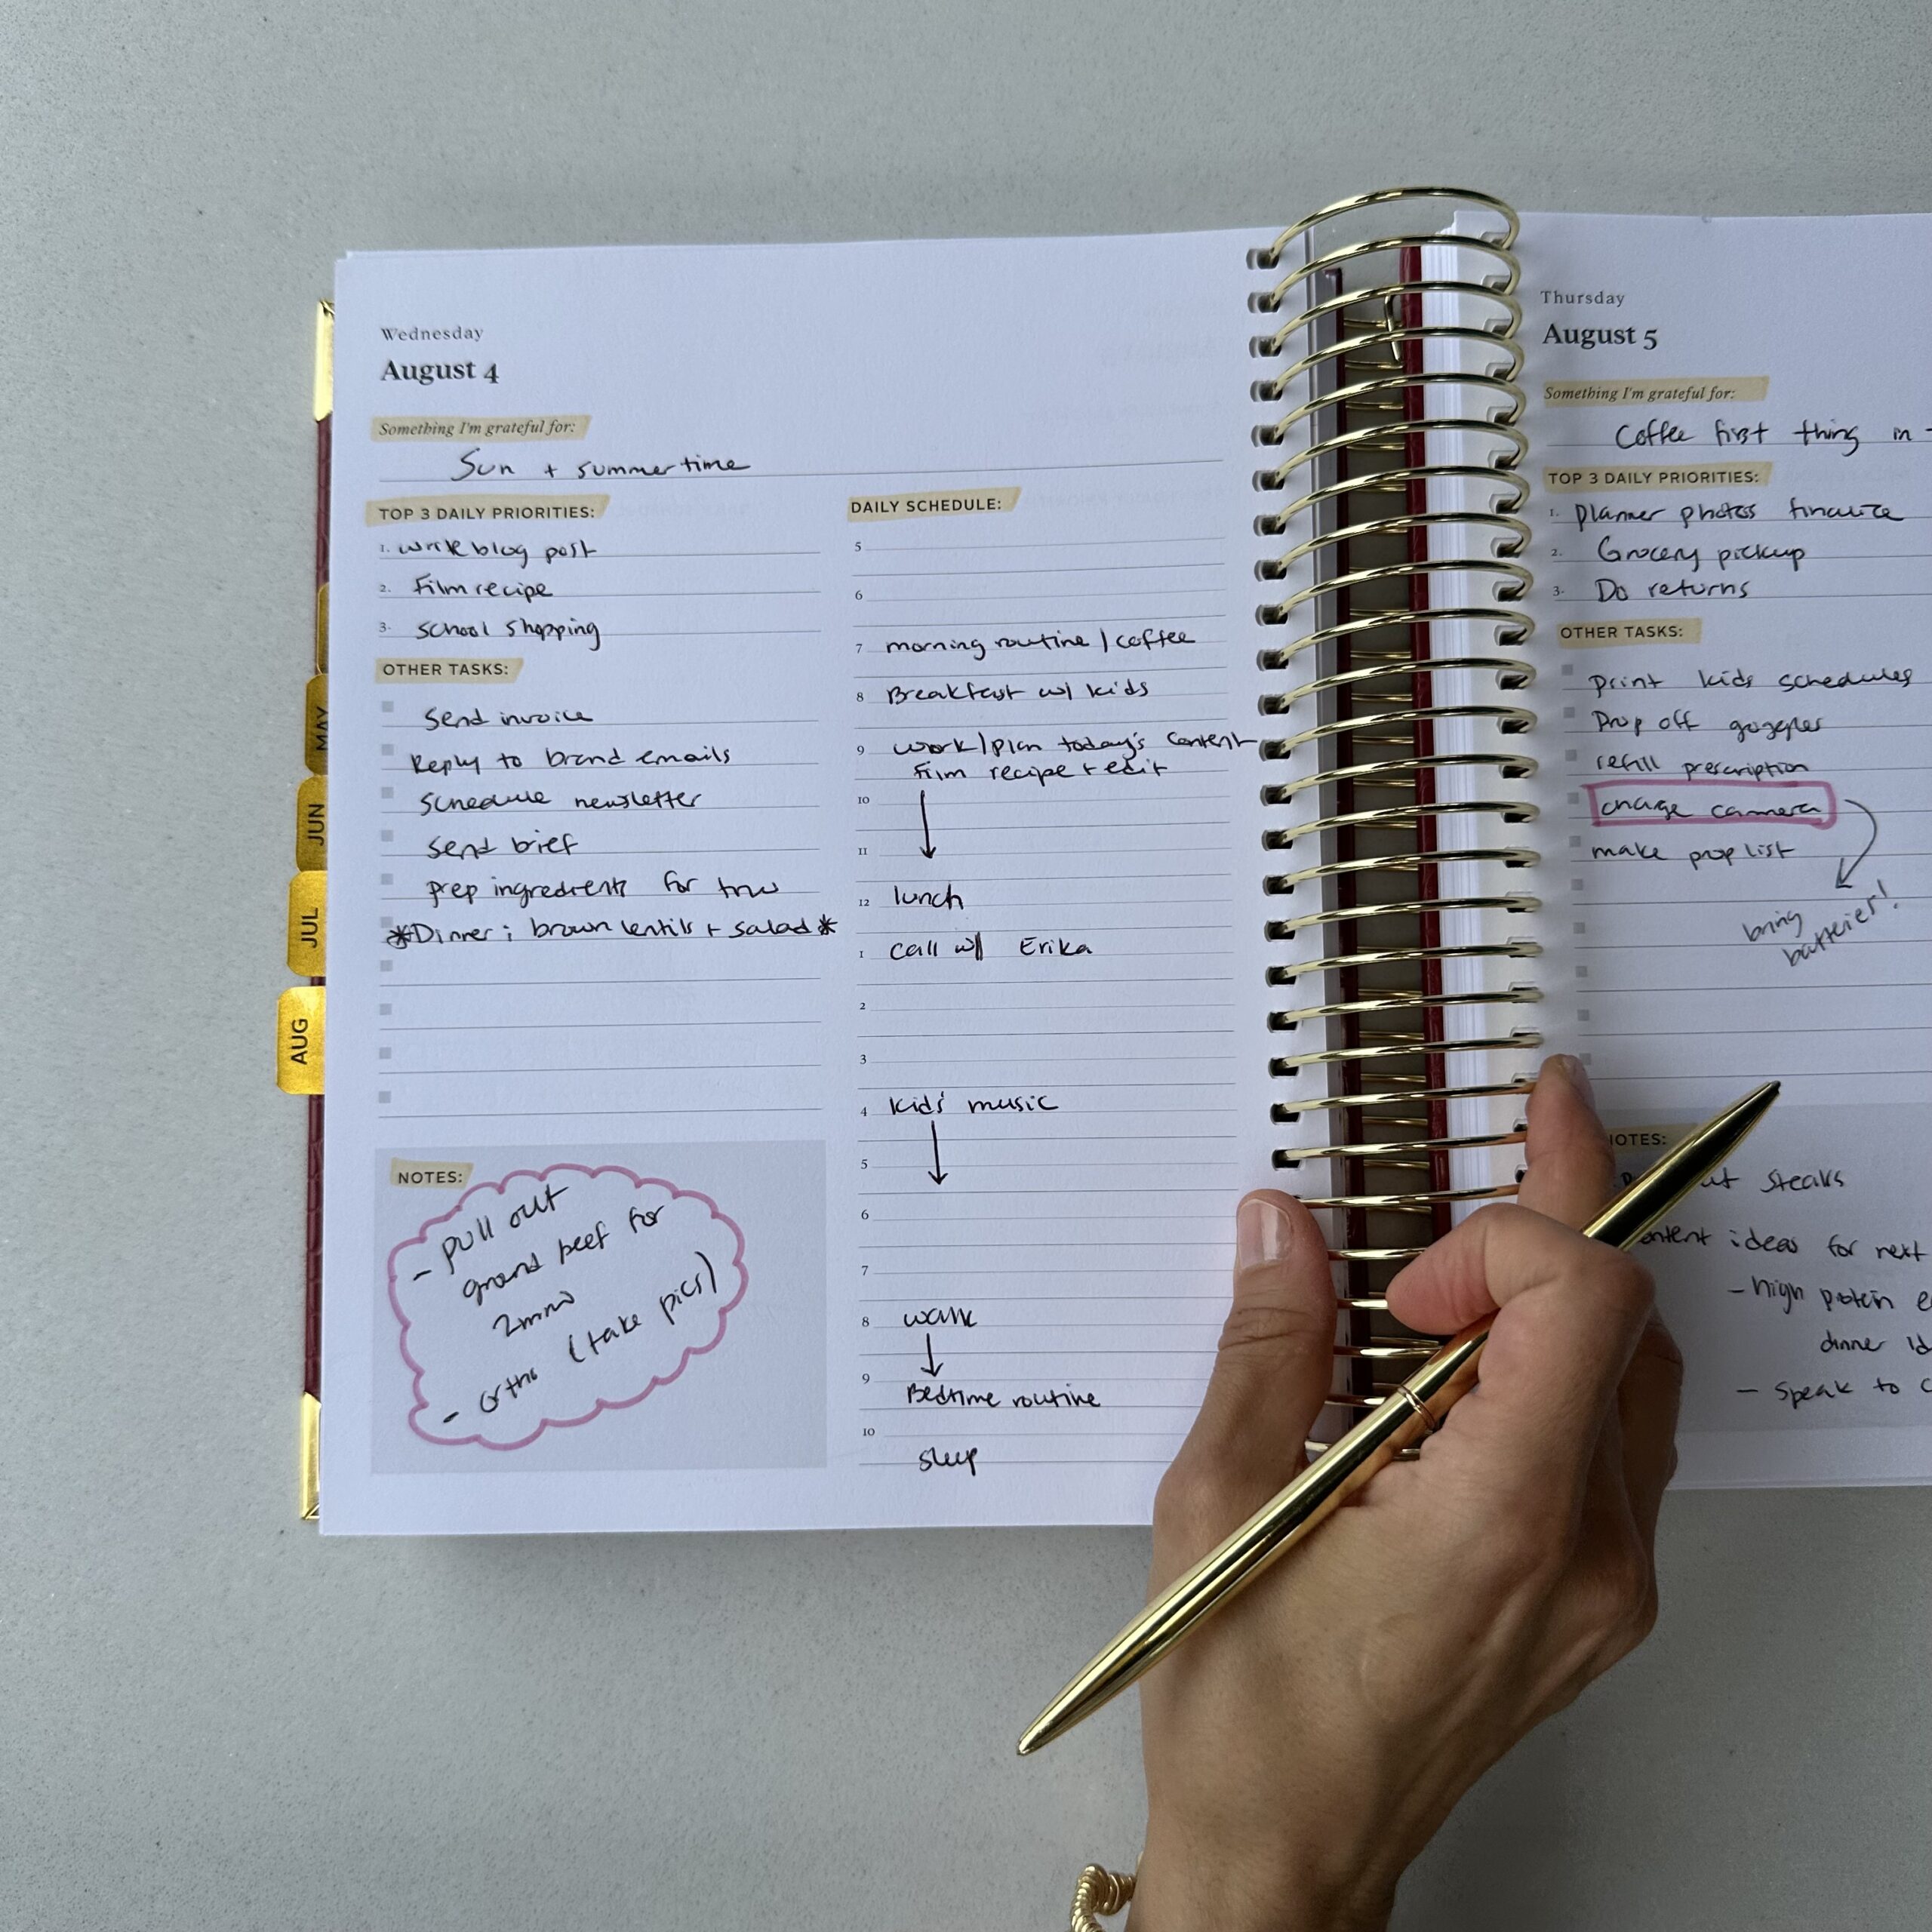 Wednesday
August 4
Something I'm grateful for:
Sun + summertime
TOP 3 DAILY PRIORITIES:
1. write blog post
2. Film recipe
3. School shopping
OTHER TASKS:
Send invoice
Reply to brand emails
Schedule newsletter
Send brief
prep ingredients for tmw
*Dinner: brown lentils + salad*
NOTES:
- pull out
ground beef for
2mrw
- ortho (take pics)
DAILY SCHEDULE:
5
6
7 morning routine / coffee
8 Breakfast w/ kids
9 work/plan today's content
film recipe + edit
10
11
12 lunch
1 Call w/ Erika
2
3
4 kids' music
5
6
7
8 walk
9
Bedtime routine
10
sleep
MAY
JUN
JUL
AUG
Thursday
August 5
Something I'm grateful for:
Coffee first thing in
TOP 3 DAILY PRIORITIES:
1. planner photos finalize
2. Grocery pickup
3. Do returns
OTHER TASKS:
Print kids schedules
Drop off goggles
refill prescription
charge camera
make prop list
bring
batteries!
NOTES:
steaks
ideas for next
- high protein
dinner
- speak to